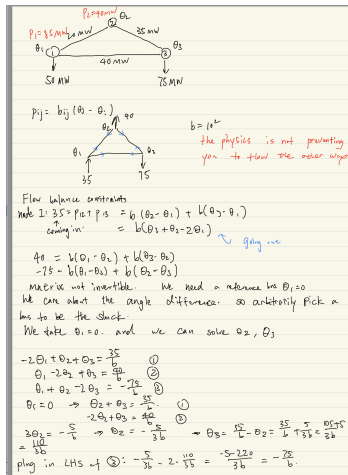 P2=40MW
② θ2
P1=85MW 20MW 35MW
θ1 ① ③ θ3
40MW
50MW 75MW
Pij = bij (θj - θi)
θ2 40
b = 10²
the physics is not preventing
you to flow the other way
θ1 θ3
35 75
Flow balance constraints
node 1: 35 = P12 + P13 = b (θ2-θ1) + b(θ3-θ1)
coming in = b(θ3+θ2-2θ1)
going out
40 = b(θ1-θ2) + b(θ3-θ2)
-75 = b(θ1-θ3) + b(θ2-θ3)
Matrix not invertible. We need a reference bus θ1=0
We care about the angle difference. so arbitrarily pick a
bus to be the slack.
We take θ1=0. and we can solve θ2, θ3
-2θ1 + θ2 + θ3 = 35/b ①
θ1 - 2θ2 + θ3 = 40/b ②
θ1 + θ2 - 2θ3 = -75/b ③
θ1=0 ⇒ θ2 + θ3 = 35/b ①
-2θ2 + θ3 = 40/b ②
3θ2 = -5/b ⇒ θ2 = -5/3b ⇒ θ3 = 35/b - θ2 = 35/b + 5/3b = 105+5/3b
= 110/3b
plug in LHS of ③: -5/3b - 2·110/3b = -5-220/3b = -75/b